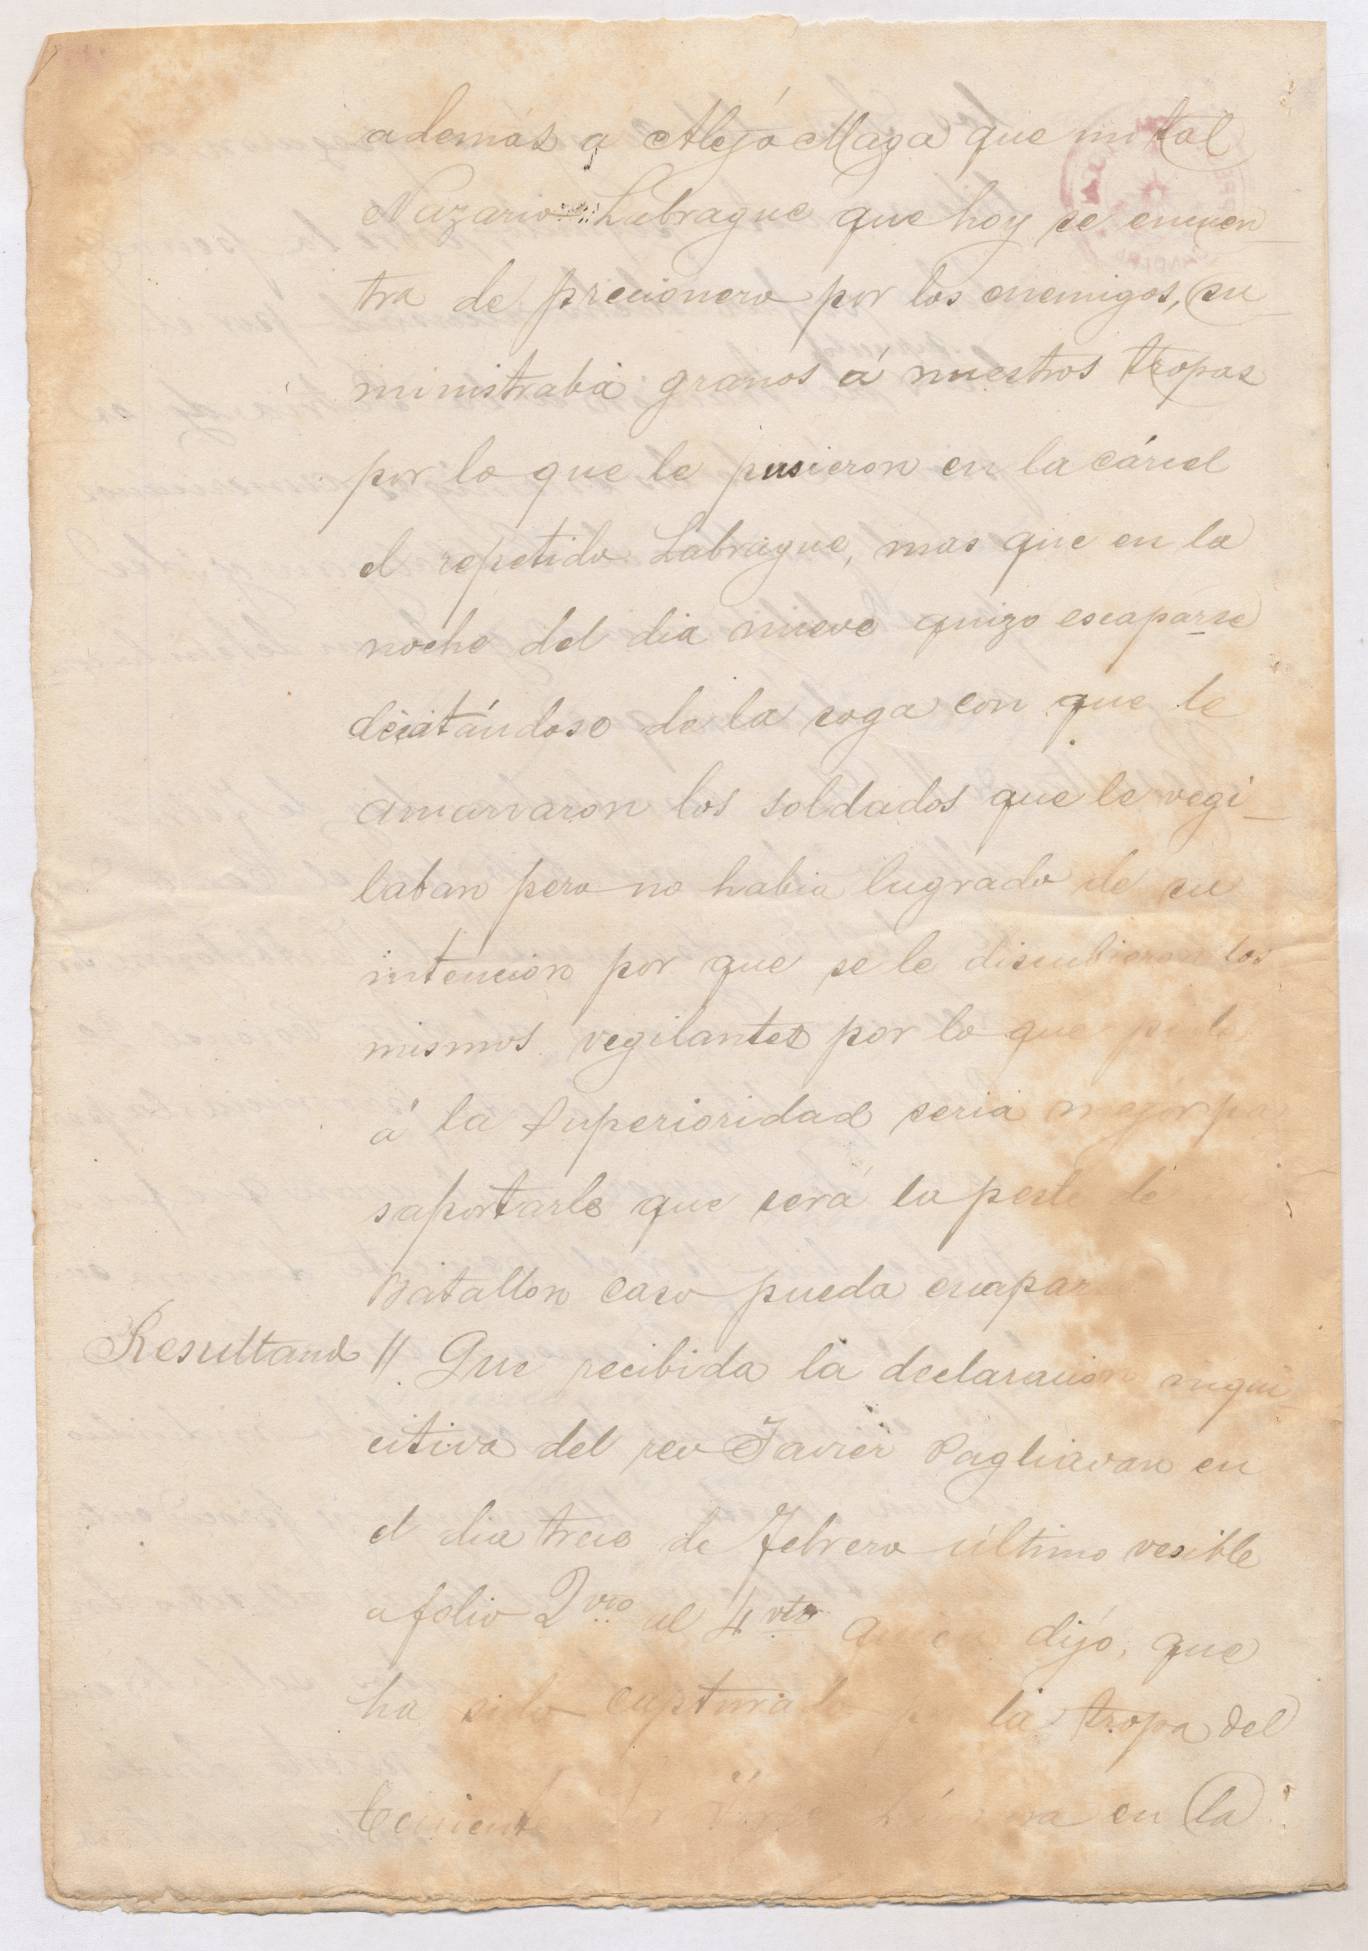 además a Alejo Maga que un tal
Nazario Labrague que hoy se encuen
tra de precionero por los enemigos, su
ministraba granos á nuestros tropas
por lo que le pusieron en la cárcel
el repetido Labrague, mas que en la
noche del dia nueve quizo escaparse
deciatándose de la soga con que le
amarraron los soldados que le vegi
laban pero no habia lugrado de su
intencion por que se le discubieron los
mismos vegilantes por lo que pido
á la Superioridad seria mejor pa
saportarle que será la peste de
Batallon caso pueda escaparse
Resultand // Que recibida la declaracion inqui
citiva del reo Javier Pagliawan en
el dia trece de Febrero último vesible
a folio 2 vto al 4 vto quien dijó, que
ha sido capturado por la tropa del
teniente en la